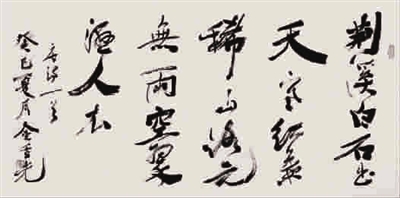 荆溪白石出
天寒红葉
稀山路元
無雨空翠
湿人衣
唐诗一首
癸巳夏月金